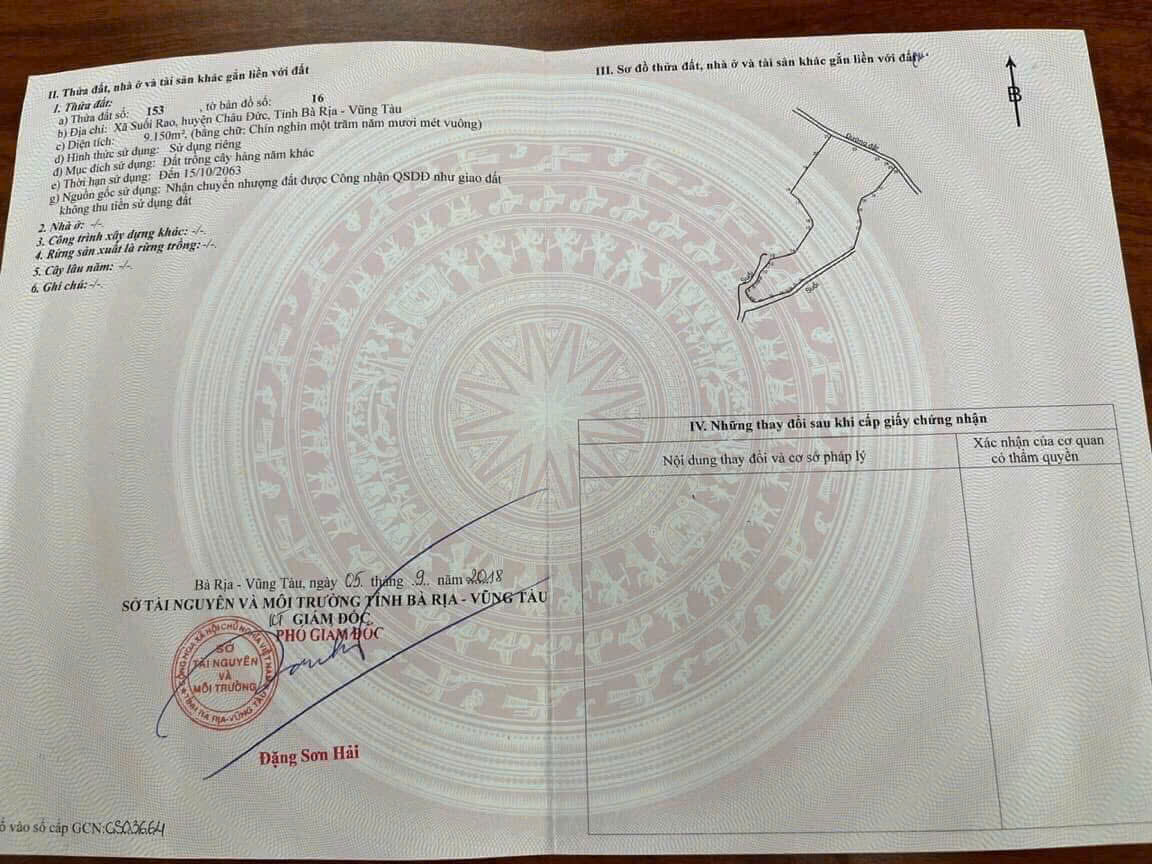 II. Thửa đất, nhà ở và tài sản khác gắn liền với đất
1. Thửa đất:
a) Thửa đất số: 153 , tờ bản đồ số: 16
b) Địa chỉ: Xã Suối Rao, huyện Châu Đức, Tỉnh Bà Rịa - Vũng Tàu
c) Diện tích: 9.150m², (bằng chữ: Chín nghìn một trăm năm mươi mét vuông)
d) Hình thức sử dụng: Sử dụng riêng
đ) Mục đích sử dụng: Đất trồng cây hàng năm khác
e) Thời hạn sử dụng: Đến 15/10/2063
g) Nguồn gốc sử dụng: Nhận chuyển nhượng đất được Công nhận QSDĐ như giao đất
không thu tiền sử dụng đất
2. Nhà ở: -/-.
3. Công trình xây dựng khác: -/-.
4. Rừng sản xuất là rừng trồng: -/-.
5. Cây lâu năm: -/-.
6. Ghi chú: -/-.
Bà Rịa - Vũng Tàu, ngày 05 tháng 9 năm 2018
SỞ TÀI NGUYÊN VÀ MÔI TRƯỜNG TỈNH BÀ RỊA - VŨNG TÀU
KT GIÁM ĐỐC
PHÓ GIÁM ĐỐC
CỘNG HÒA XÃ HỘI CHỦ NGHĨA VIỆT NAM
SỞ
TÀI NGUYÊN
VÀ
MÔI TRƯỜNG
TỈNH BÀ RỊA-VŨNG TÀU
Đặng Sơn Hải
ổ vào sổ cấp GCN: CS03664
III. Sơ đồ thửa đất, nhà ở và tài sản khác gắn liền với đất
B
Đường đất
Suối
Suối
IV. Những thay đổi sau khi cấp giấy chứng nhận
Nội dung thay đổi và cơ sở pháp lý
Xác nhận của cơ quan
có thẩm quyền